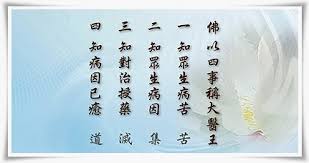 佛以四事稱大醫王
一知眾生病苦 苦
二知眾生病因 集
三知對治授藥 滅
四知病因已癒 道